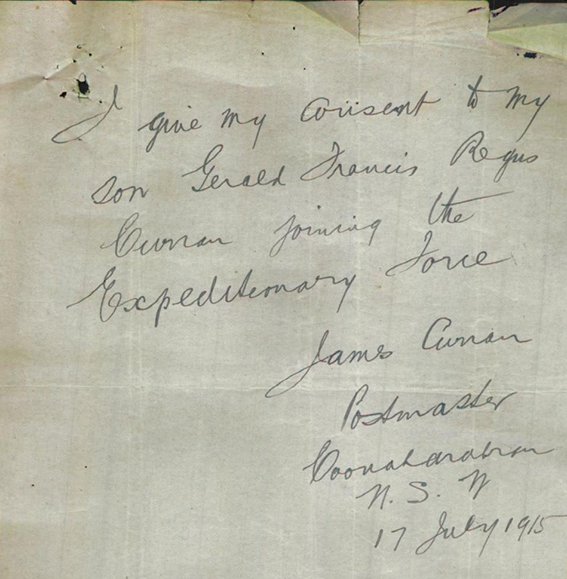 I give my consent to my
son Gerald Francis Regis
Curran joining the
Expeditionary Force
James Curran
Postmaster
Coonabarabran
N. S. W
17 July 1915